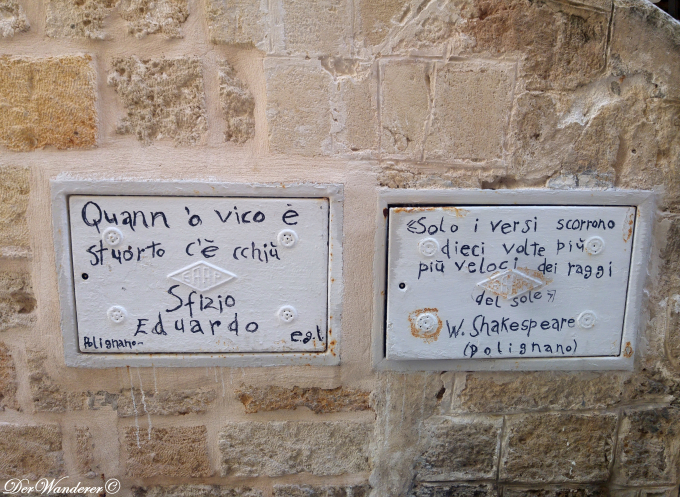 Quann 'o vico è
stuorto c'è cchiù
Sfizio
Eduardo
Polignano e.g.l.
«Solo i versi scorrono
dieci volte più
più veloci dei raggi
del sole»
W. Shakespeare
(Polignano)
DerWanderer ©